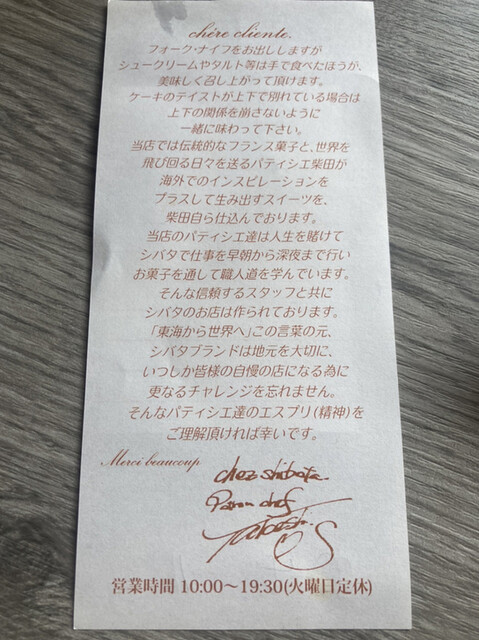 chère cliente.
フォーク・ナイフをお出ししますが
シュークリームやタルト等は手で食べたほうが、
美味しく召し上がって頂けます。
ケーキのテイストが上下で別れている場合は
上下の関係を崩さないように
一緒に味わって下さい。
当店では伝統的なフランス菓子と、世界を
飛び回る日々を送るパティシエ柴田が
海外でのインスピレーションを
プラスして生み出すスイーツを、
柴田自ら仕込んでおります。
当店のパティシエ達は人生を賭けて
シバタで仕事を早朝から深夜まで行い
お菓子を通して職人道を学んでいます。
そんな信頼するスタッフと共に
シバタのお店は作られております。
「東海から世界へ」この言葉の元、
シバタブランドは地元を大切に、
いつしか皆様の自慢の店になる為に
更なるチャレンジを忘れません。
そんなパティシエ達のエスプリ(精神)を
ご理解頂ければ幸いです。
Merci beaucoup
chez shibata.
Patron chef
Takeshi. S
営業時間 10:00〜19:30(火曜日定休)